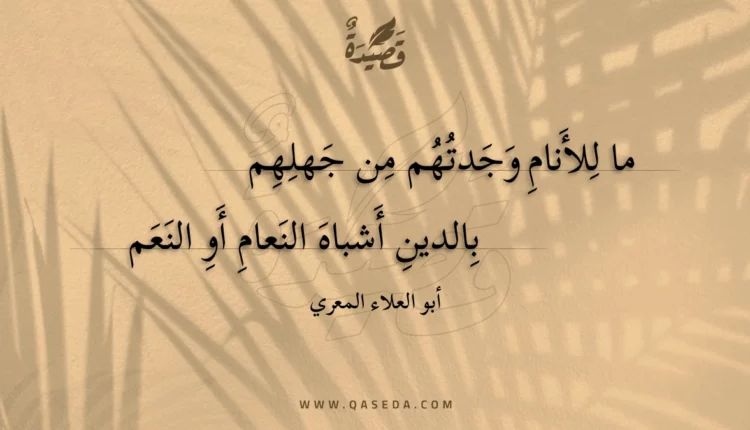 قَصِيْدَةٌ
ما لِلأَنامِ وَجَدتُهُم مِن جَهلِهِم
بِالدينِ أَشباهَ النَعامِ أَوِ النَعَم
أبو العلاء المعري
WWW.QASEDA.COM